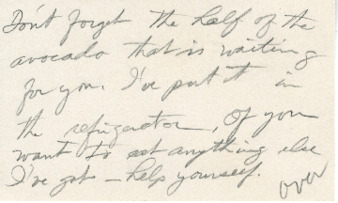 Don't forget the half of the
avocado that is waiting
for you. I've put it in
the refrigerator, If you
want to eat anything else
I've got - help yourself.
over